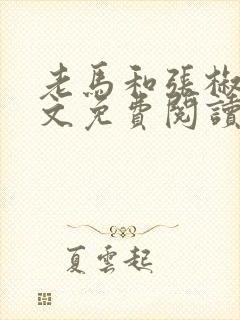 老馬和張椒
文免費閱讀
夏雲起